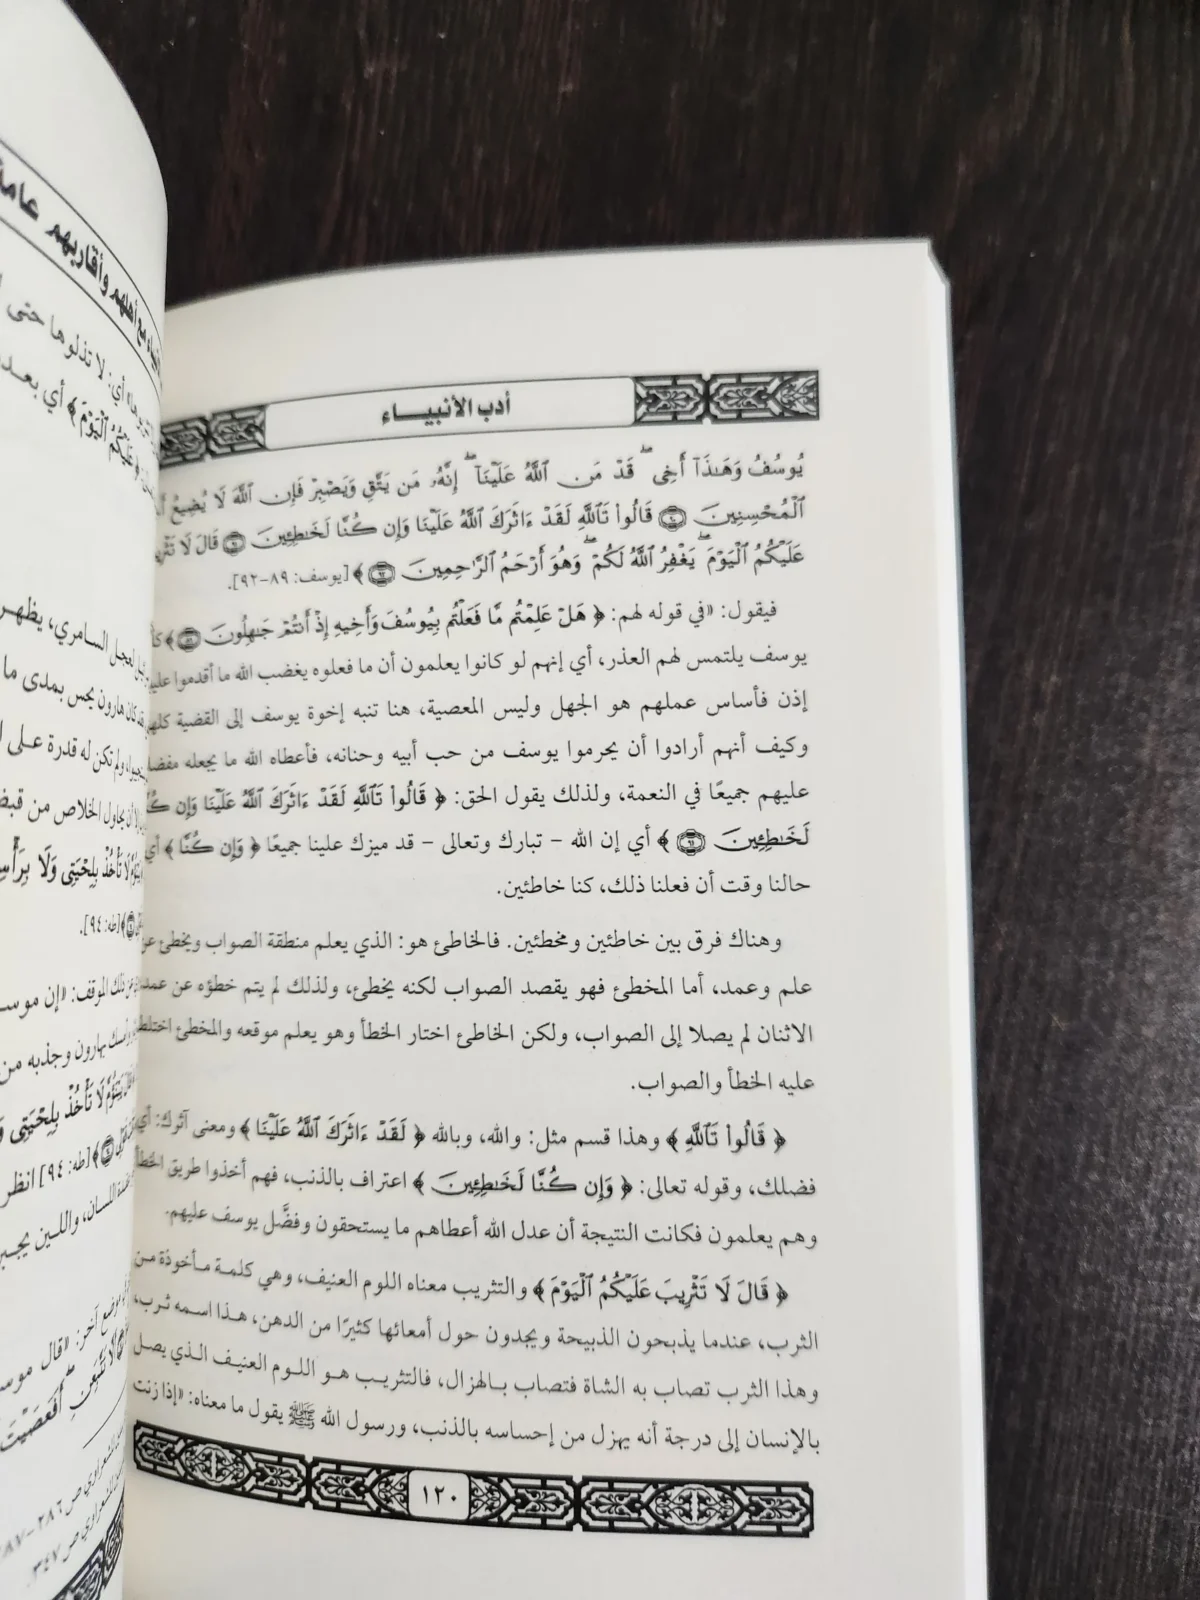 أدب الأنبيـــاء
يُوسُفُ وَهَـٰذَآ أَخِى ۖ قَدْ مَنَّ ٱللَّهُ عَلَيْنَآ ۖ إِنَّهُۥ مَن يَتَّقِ وَيَصْبِرْ فَإِنَّ ٱللَّهَ لَا يُضِيعُ
ٱلْمُحْسِنِينَ ۝٩٠ قَالُوا۟ تَٱللَّهِ لَقَدْ ءَاثَرَكَ ٱللَّهُ عَلَيْنَا وَإِن كُنَّا لَخَـٰطِـِٔينَ ۝٩١ قَالَ لَا
عَلَيْكُمُ ٱلْيَوْمَ ۖ يَغْفِرُ ٱللَّهُ لَكُمْ ۖ وَهُوَ أَرْحَمُ ٱلرَّٰحِمِينَ ۝٩٢ ﴾ [يوسف: ٨٩-٩٢].
فيقول: «في قوله لهم: ﴿ هَلْ عَلِمْتُم مَّا فَعَلْتُم بِيُوسُفَ وَأَخِيهِ إِذْ أَنتُمْ جَـٰهِلُونَ ۝٨٩ ﴾
يوسف يلتمس لهم العذر، أي إنهم لو كانوا يعلمون أن ما فعلوه يغضب الله ما أقدموا
إذن فأساس عملهم هو الجهل وليس المعصية، هنا تنبه إخوة يوسف إلى القضية
وكيف أنهم أرادوا أن يحرموا يوسف من حب أبيه وحنانه، فأعطاه الله ما يجعله
عليهم جميعًا في النعمة، ولذلك يقول الحق: ﴿ قَالُوا۟ تَٱللَّهِ لَقَدْ ءَاثَرَكَ ٱللَّهُ عَلَيْنَا وَإِن
لَخَـٰطِـِٔينَ ۝٩١ ﴾ أي إن الله - تبارك وتعالى - قد ميزك علينا جميعًا ﴿ وَإِن كُنَّا ﴾ أي
حالنا وقت أن فعلنا ذلك، كنا خاطئين.
وهناك فرق بين خاطئين ومخطئين. فالخاطئ هو: الذي يعلم منطقة الصواب ويخطئ عن
علم وعمد، أما المخطئ فهو يقصد الصواب لكنه يخطئ، ولذلك لم يتم خطؤه عن عمد
الاثنان لم يصلا إلى الصواب، ولكن الخاطئ اختار الخطأ وهو يعلم موقعه والمخطئ اختلط
عليه الخطأ والصواب.
﴿ قَالُوا۟ تَٱللَّهِ ﴾ وهذا قسم مثل: والله، وبالله ﴿ لَقَدْ ءَاثَرَكَ ٱللَّهُ عَلَيْنَا ﴾ ومعنى آثرك: أي
فضلك، وقوله تعالى: ﴿ وَإِن كُنَّا لَخَـٰطِـِٔينَ ﴾ اعتراف بالذنب، فهم أخذوا طريق الخطأ
وهم يعلمون فكانت النتيجة أن عدل الله أعطاهم ما يستحقون وفضَّل يوسف عليهم.
﴿ قَالَ لَا تَثْرِيبَ عَلَيْكُمُ ٱلْيَوْمَ ﴾ والتثريب معناه اللوم العنيف، وهي كلمة مأخوذة من
الثرب، عندما يذبحون الذبيحة ويجدون حول أمعائها كثيرًا من الدهن، هذا اسمه ثرب،
وهذا الثرب تصاب به الشاة فتصاب بالهزال، فالتثريب هو اللوم العنيف الذي يصل
بالإنسان إلى درجة أنه يهزل من إحساسه بالذنب، ورسول الله ﷺ يقول ما معناه: «إذا زنت
١٢٠
مع أهلهم وأقاربهم عامة
أي: لا تذلوها حتى
عَلَيْكُمُ ٱلْيَوْمَ ﴾ أي بعد
العجل السامري، يظهر
كان هارون يحس بمدى ما
ولم تكن له قدرة على
أن يحاول الخلاص من
لَا تَأْخُذْ بِلِحْيَتِى وَلَا
[طه: ٩٤].
ذلك الموقف: «إن
بهارون وجذبه من
لَا تَأْخُذْ بِلِحْيَتِى
[طه: ٩٤] انظر
اللسان، واللين
موضع آخر: «قال
أَفَعَصَيْتَ
للشعراوي ص ٢٨٦-
للشعراوي ص ٣٤٧.